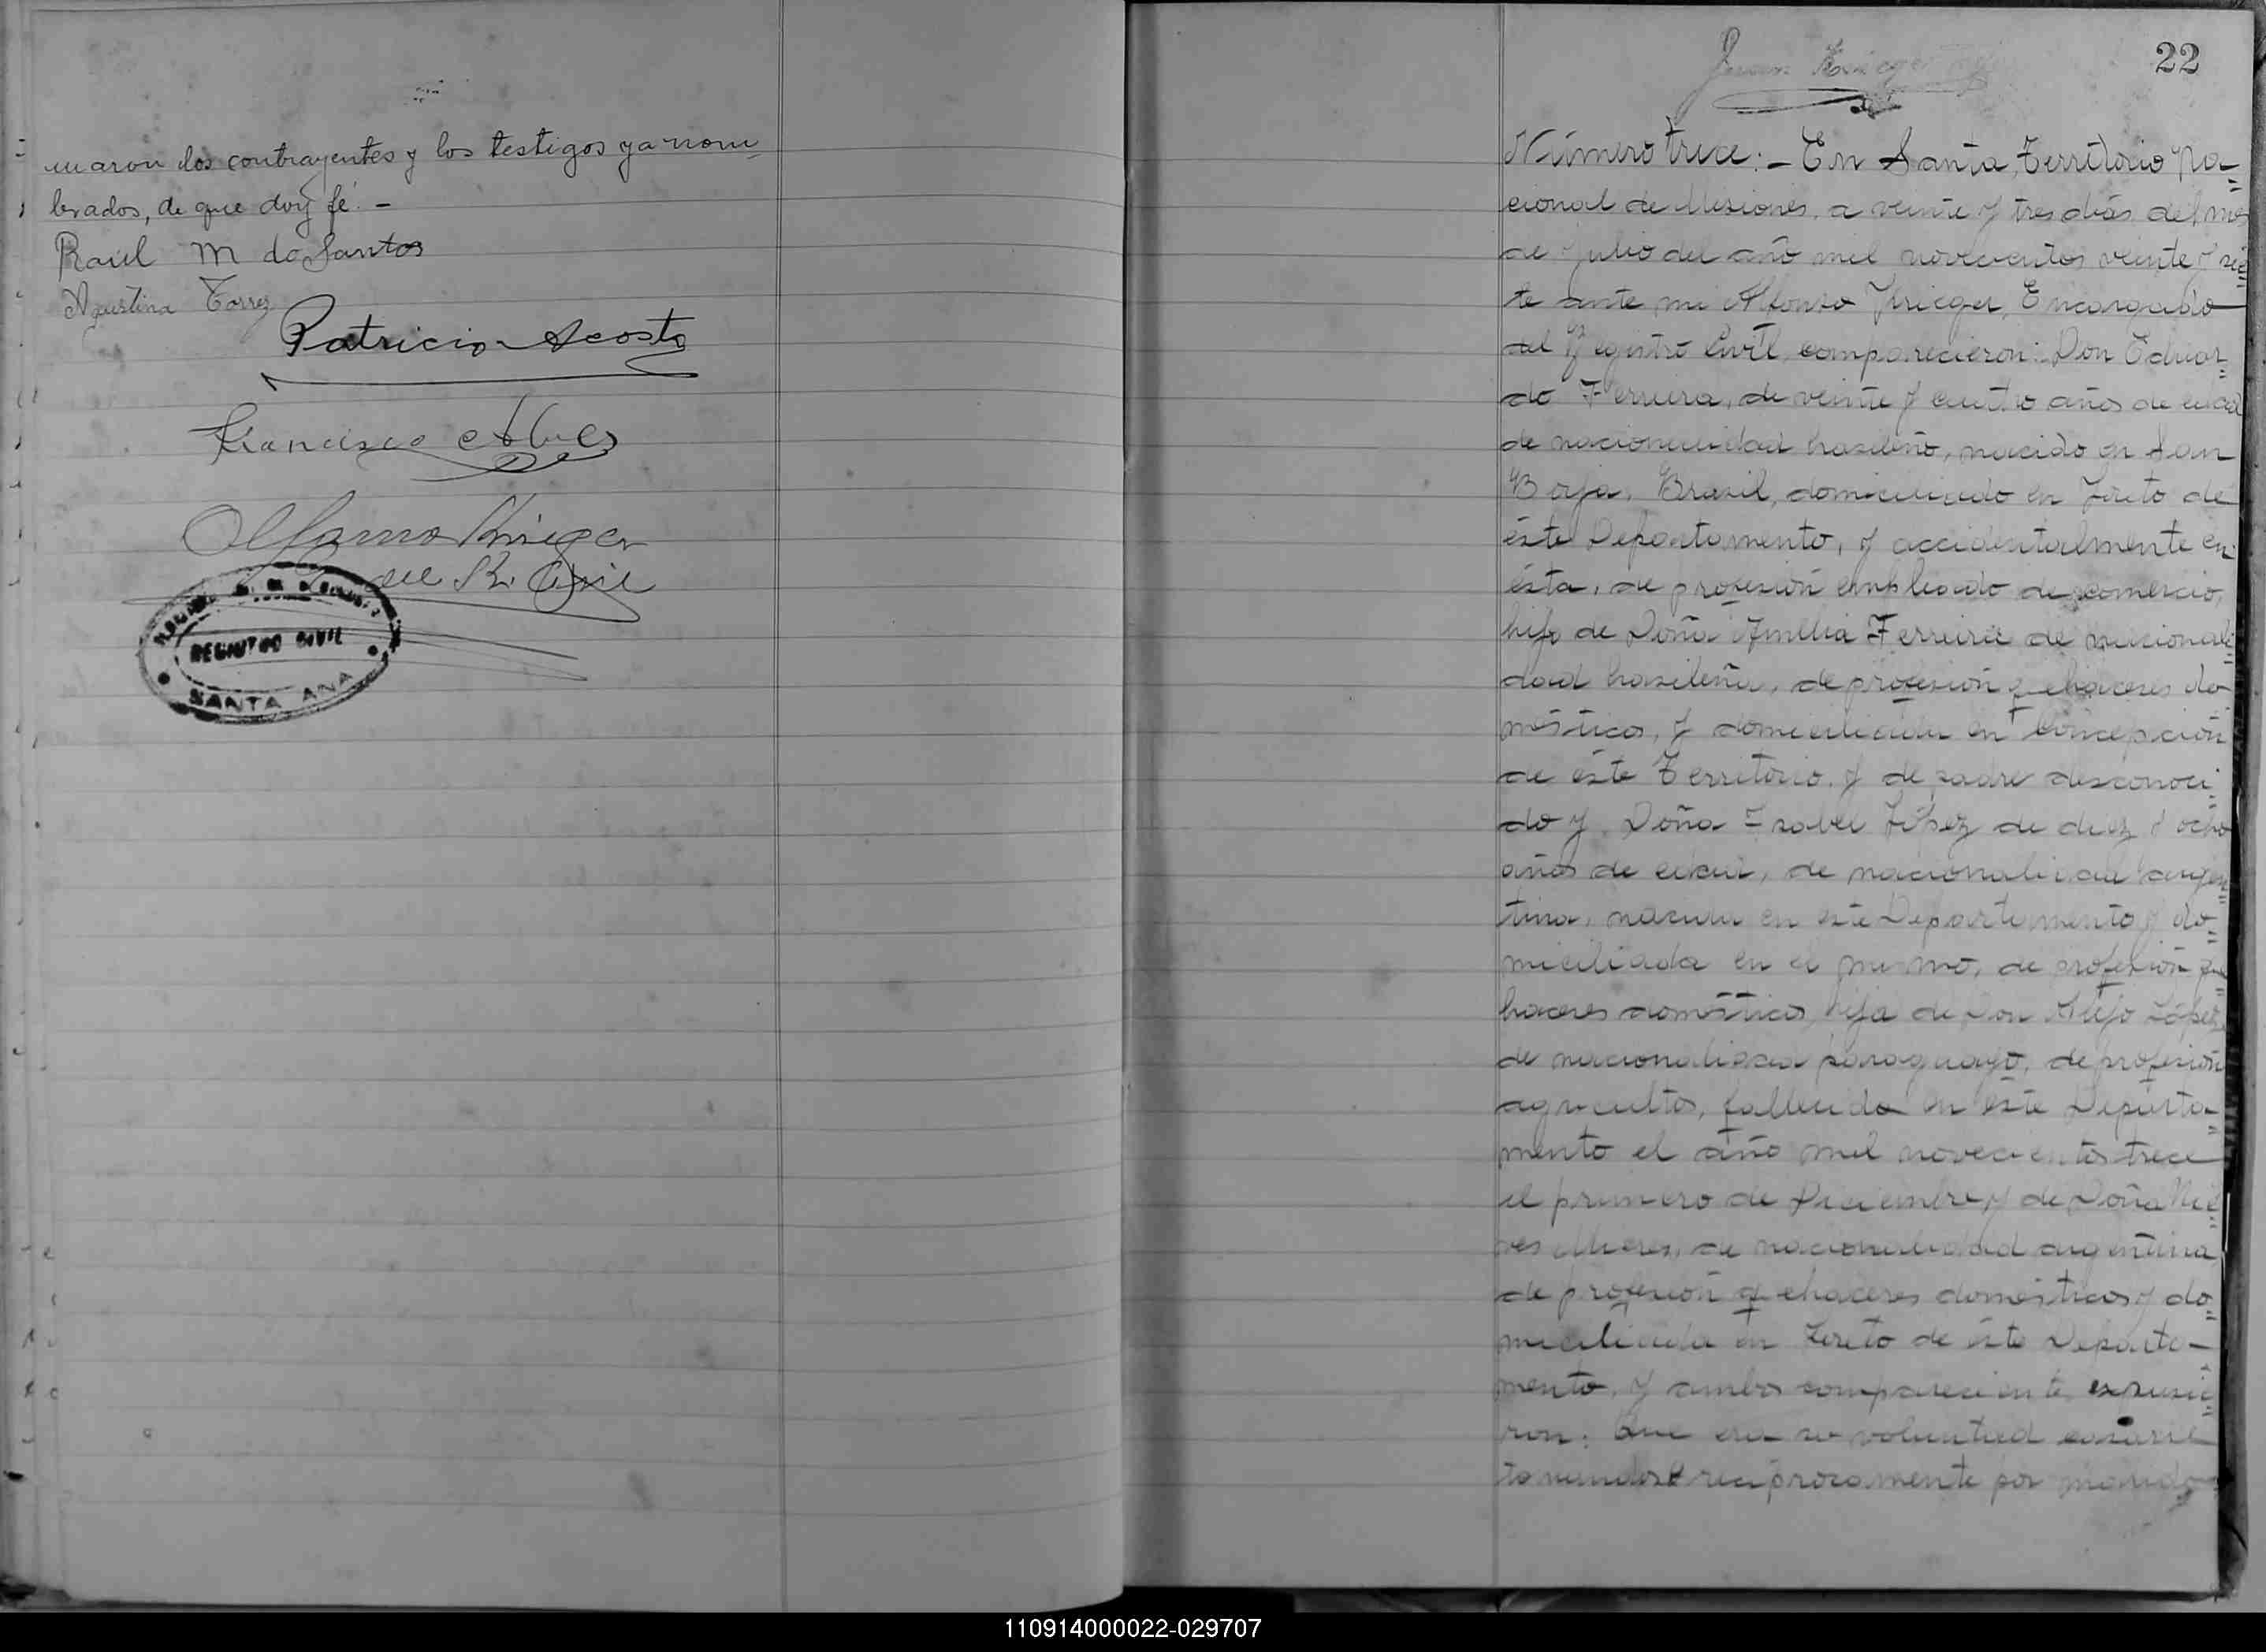 maron los contrayentes y los testigos ya nom
brados, de que doy fé. -
Raúl M do Santos
Agustina Torres
Patricio Acosta
Francisco Alves
Alfonso Krieger
del R. Civil
REGISTRO CIVIL
SANTA ANA
22
Juan Krieger
Número trece: - En Santa, Territorio Na=
cional de Misiones, a veinte y tres dias del mes
de Julio del año mil novecientos veinte y sie=
te ante mi Alfonso Krieger, Encargado
del Registro Civil, comparecieron: Don Eduar=
do Ferreira, de veinte y cuatro años de edad
de nacionalidad brasileño, nacido en San
Borja, Brasil, domiciliado en Loreto de
éste Departamento, y accidentalmente en
ésta, de profesión empleado de comercio,
hijo de Doña Amelia Ferreira de nacionali=
dad brasileña, de profesión quehaceres do-
mésticos, y domiciliada en Concepción
de éste Territorio, y de padre desconoci=
do y Doña Isabel López de diez y ocho
años de edad, de nacionalidad argen=
tina, nacida en este Departamento y do=
miciliada en el mismo, de profesión que=
haceres domésticos, hija de Don Alejo López,
de nacionalidad paraguayo, de profesión
agricultor, fallecido en éste Departa=
mento el año mil novecientos trece
el primero de Diciembre y de Doña Nie=
ves de nacionalidad argentina
de profesión quehaceres domésticos y do=
miciliada en Loreto de éste Departa-
mento, y ambos comparecientes expusie=
ron: Que era su voluntad casarse
tomandose reciprocamente por marido
110914000022-029707